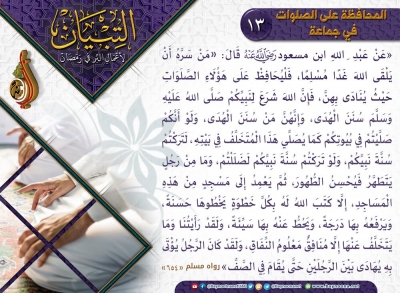 المحافظة على الصلوات
في جماعة
١٣
التبيان
لأعمال البر في رمضان
«عَنْ عَبْدِ اللهِ ابن مسعود رَضِيَ اللهُ عَنْهُ قَالَ: «مَنْ سَرَّهُ أَنْ
يَلْقَى اللهَ غَدًا مُسْلِمًا، فَلْيُحَافِظْ عَلَى هَؤُلَاءِ الصَّلَوَاتِ
حَيْثُ يُنَادَى بِهِنَّ، فَإِنَّ اللهَ شَرَعَ لِنَبِيِّكُمْ صَلَّى اللهُ عَلَيْهِ
وَسَلَّمَ سُنَنَ الْهُدَى، وَإِنَّهُنَّ مَنْ سُنَنِ الْهُدَى، وَلَوْ أَنَّكُمْ
صَلَّيْتُمْ فِي بُيُوتِكُمْ كَمَا يُصَلِّي هَذَا الْمُتَخَلِّفُ فِي بَيْتِهِ، لَتَرَكْتُمْ
سُنَّةَ نَبِيِّكُمْ، وَلَوْ تَرَكْتُمْ سُنَّةَ نَبِيِّكُمْ لَضَلَلْتُمْ، وَمَا مِنْ رَجُلٍ
يَتَطَهَّرُ فَيُحْسِنُ الطُّهُورَ، ثُمَّ يَعْمِدُ إِلَى مَسْجِدٍ مِنْ هَذِهِ
الْمَسَاجِدِ، إِلَّا كَتَبَ اللهُ لَهُ بِكُلِّ خَطْوَةٍ يَخْطُوهَا حَسَنَةً،
وَيَرْفَعُهُ بِهَا دَرَجَةً، وَيَحُطُّ عَنْهُ بِهَا سَيِّئَةً، وَلَقَدْ رَأَيْتُنَا وَمَا
يَتَخَلَّفُ عَنْهَا إِلَّا مُنَافِقٌ مَعْلُومُ النِّفَاقِ، وَلَقَدْ كَانَ الرَّجُلُ يُؤْتَى
بِهِ يُهَادَى بَيْنَ الرَّجُلَيْنِ حَتَّى يُقَامَ فِي الصَّفِّ» رواه مسلم «٦٥٤»